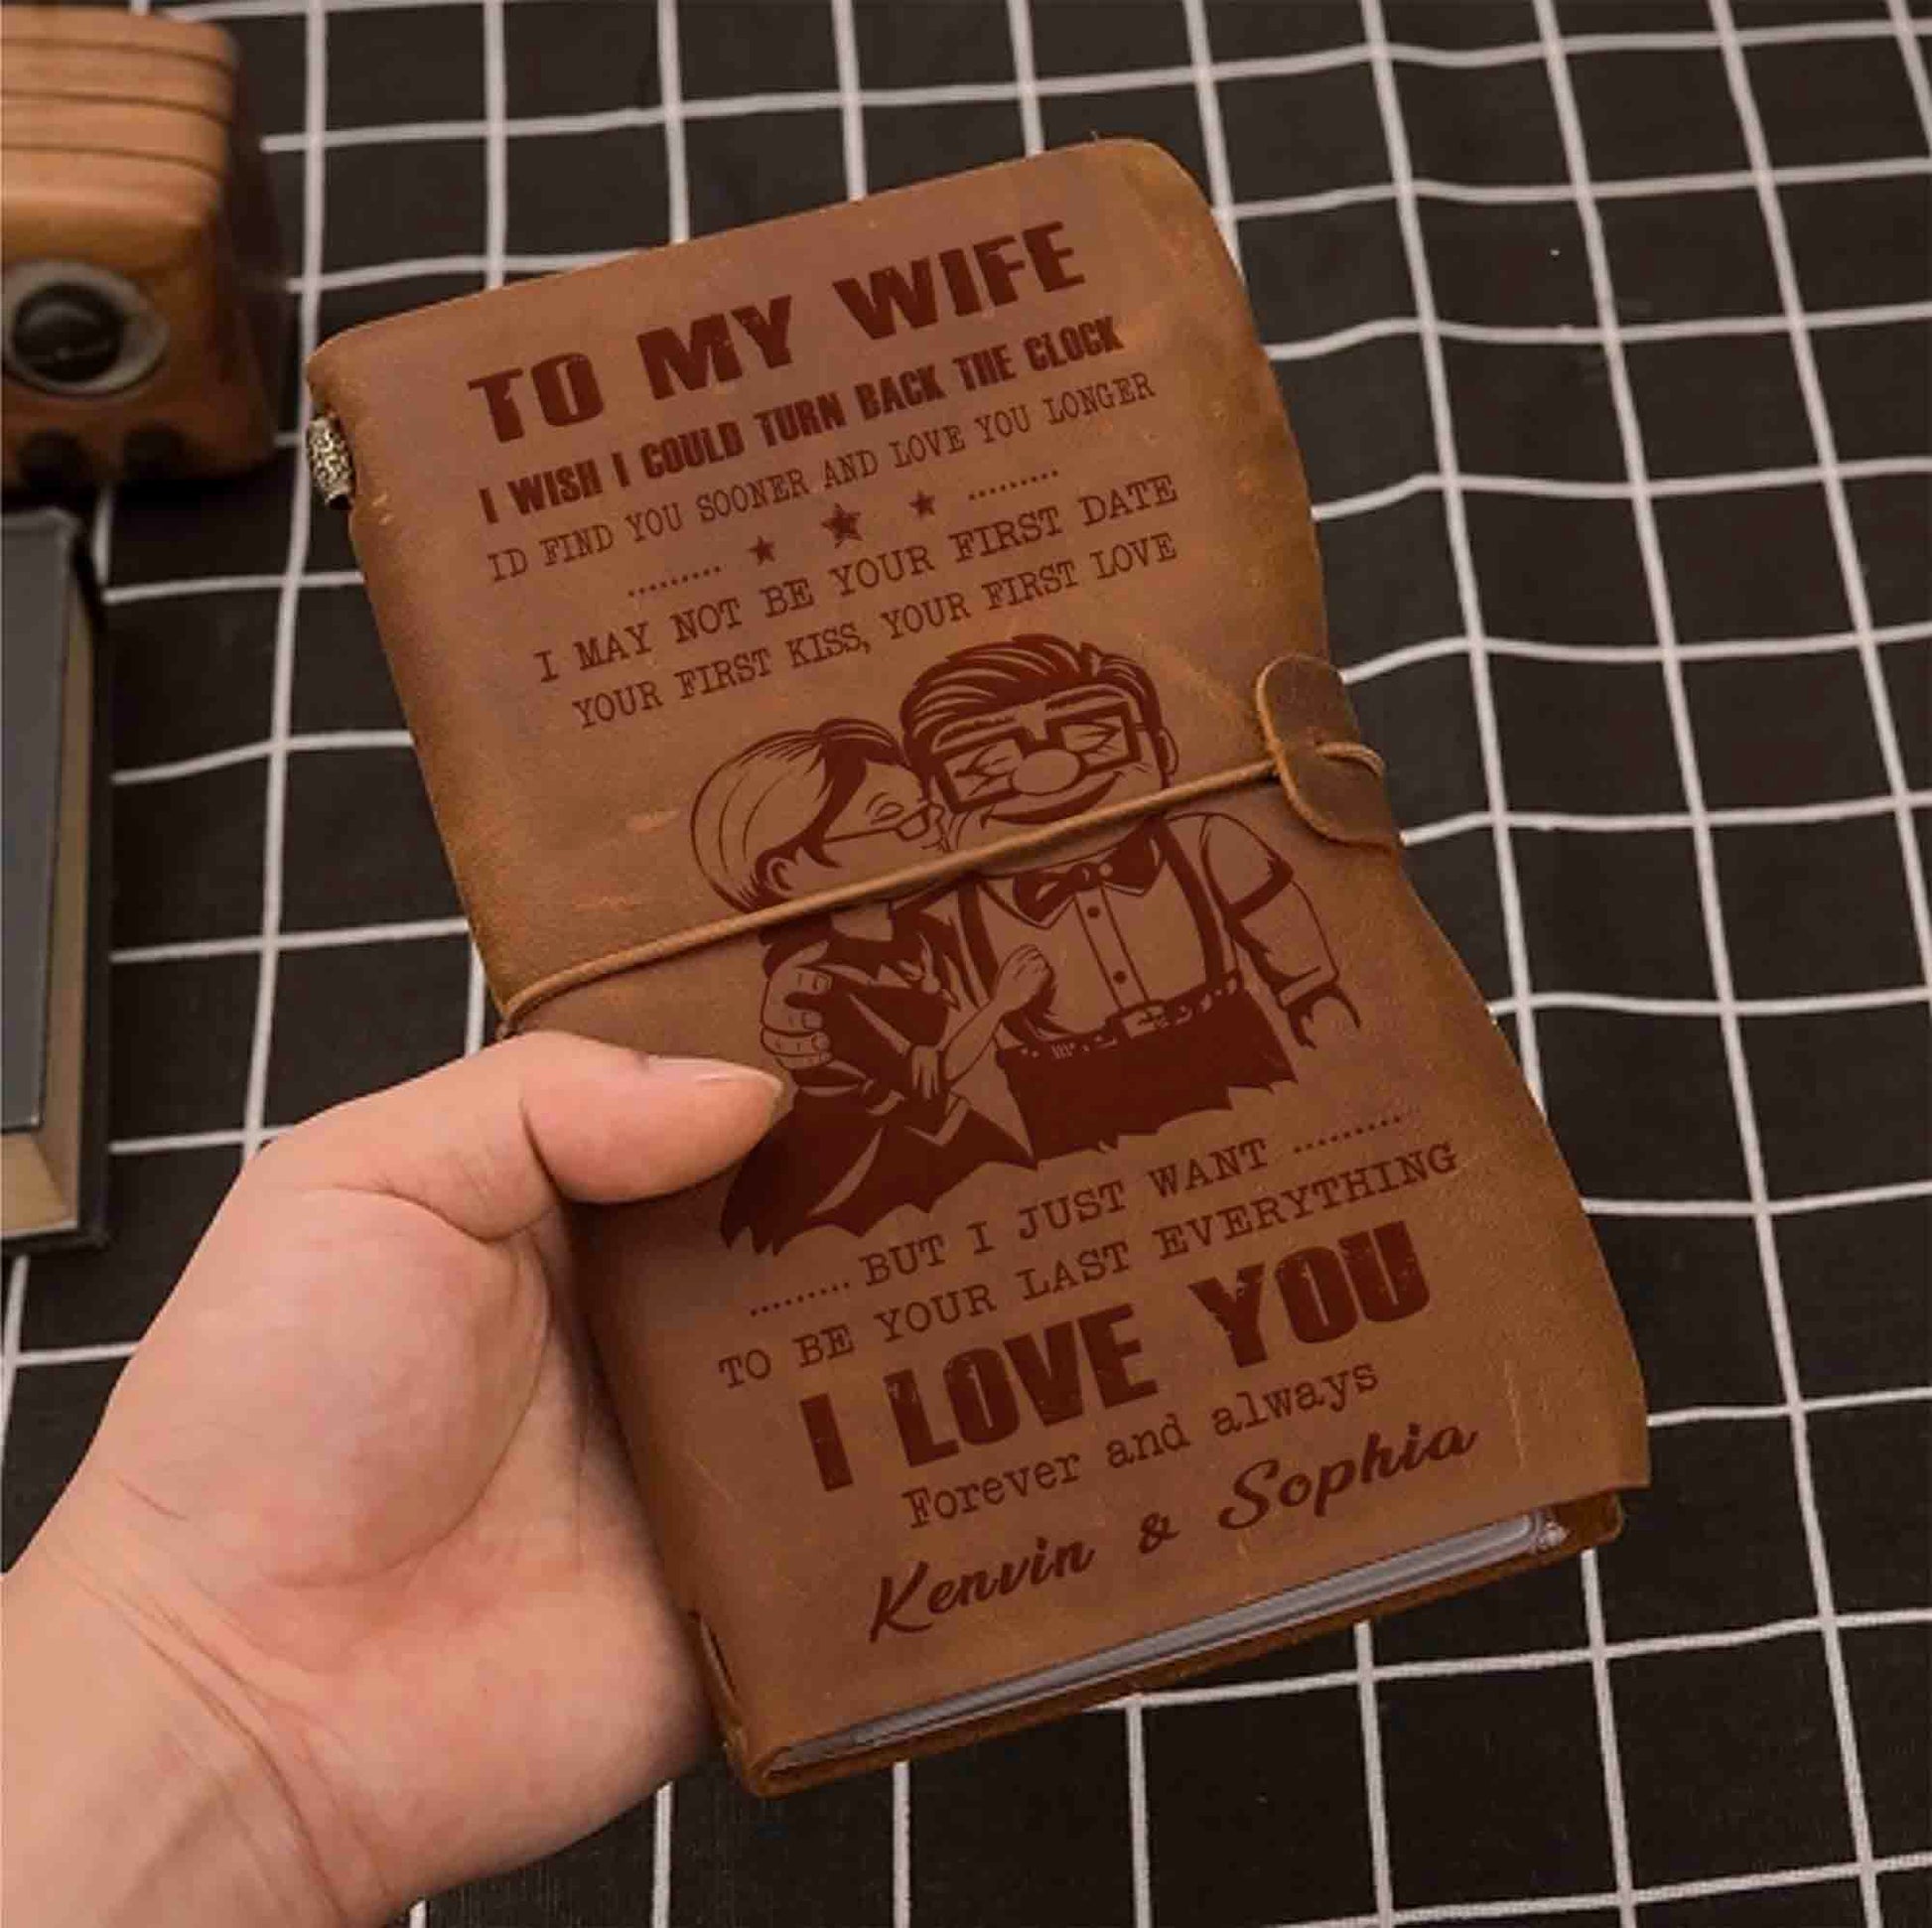 TO MY WIFE
I WISH I COULD TURN BACK THE CLOCK
ID FIND YOU SOONER AND LOVE YOU LONGER
......... ★ ★ ★ .........
I MAY NOT BE YOUR FIRST DATE
YOUR FIRST KISS, YOUR FIRST LOVE
......... BUT I JUST WANT .........
TO BE YOUR LAST EVERYTHING
I LOVE YOU
Forever and always
Kenvin & Sophia